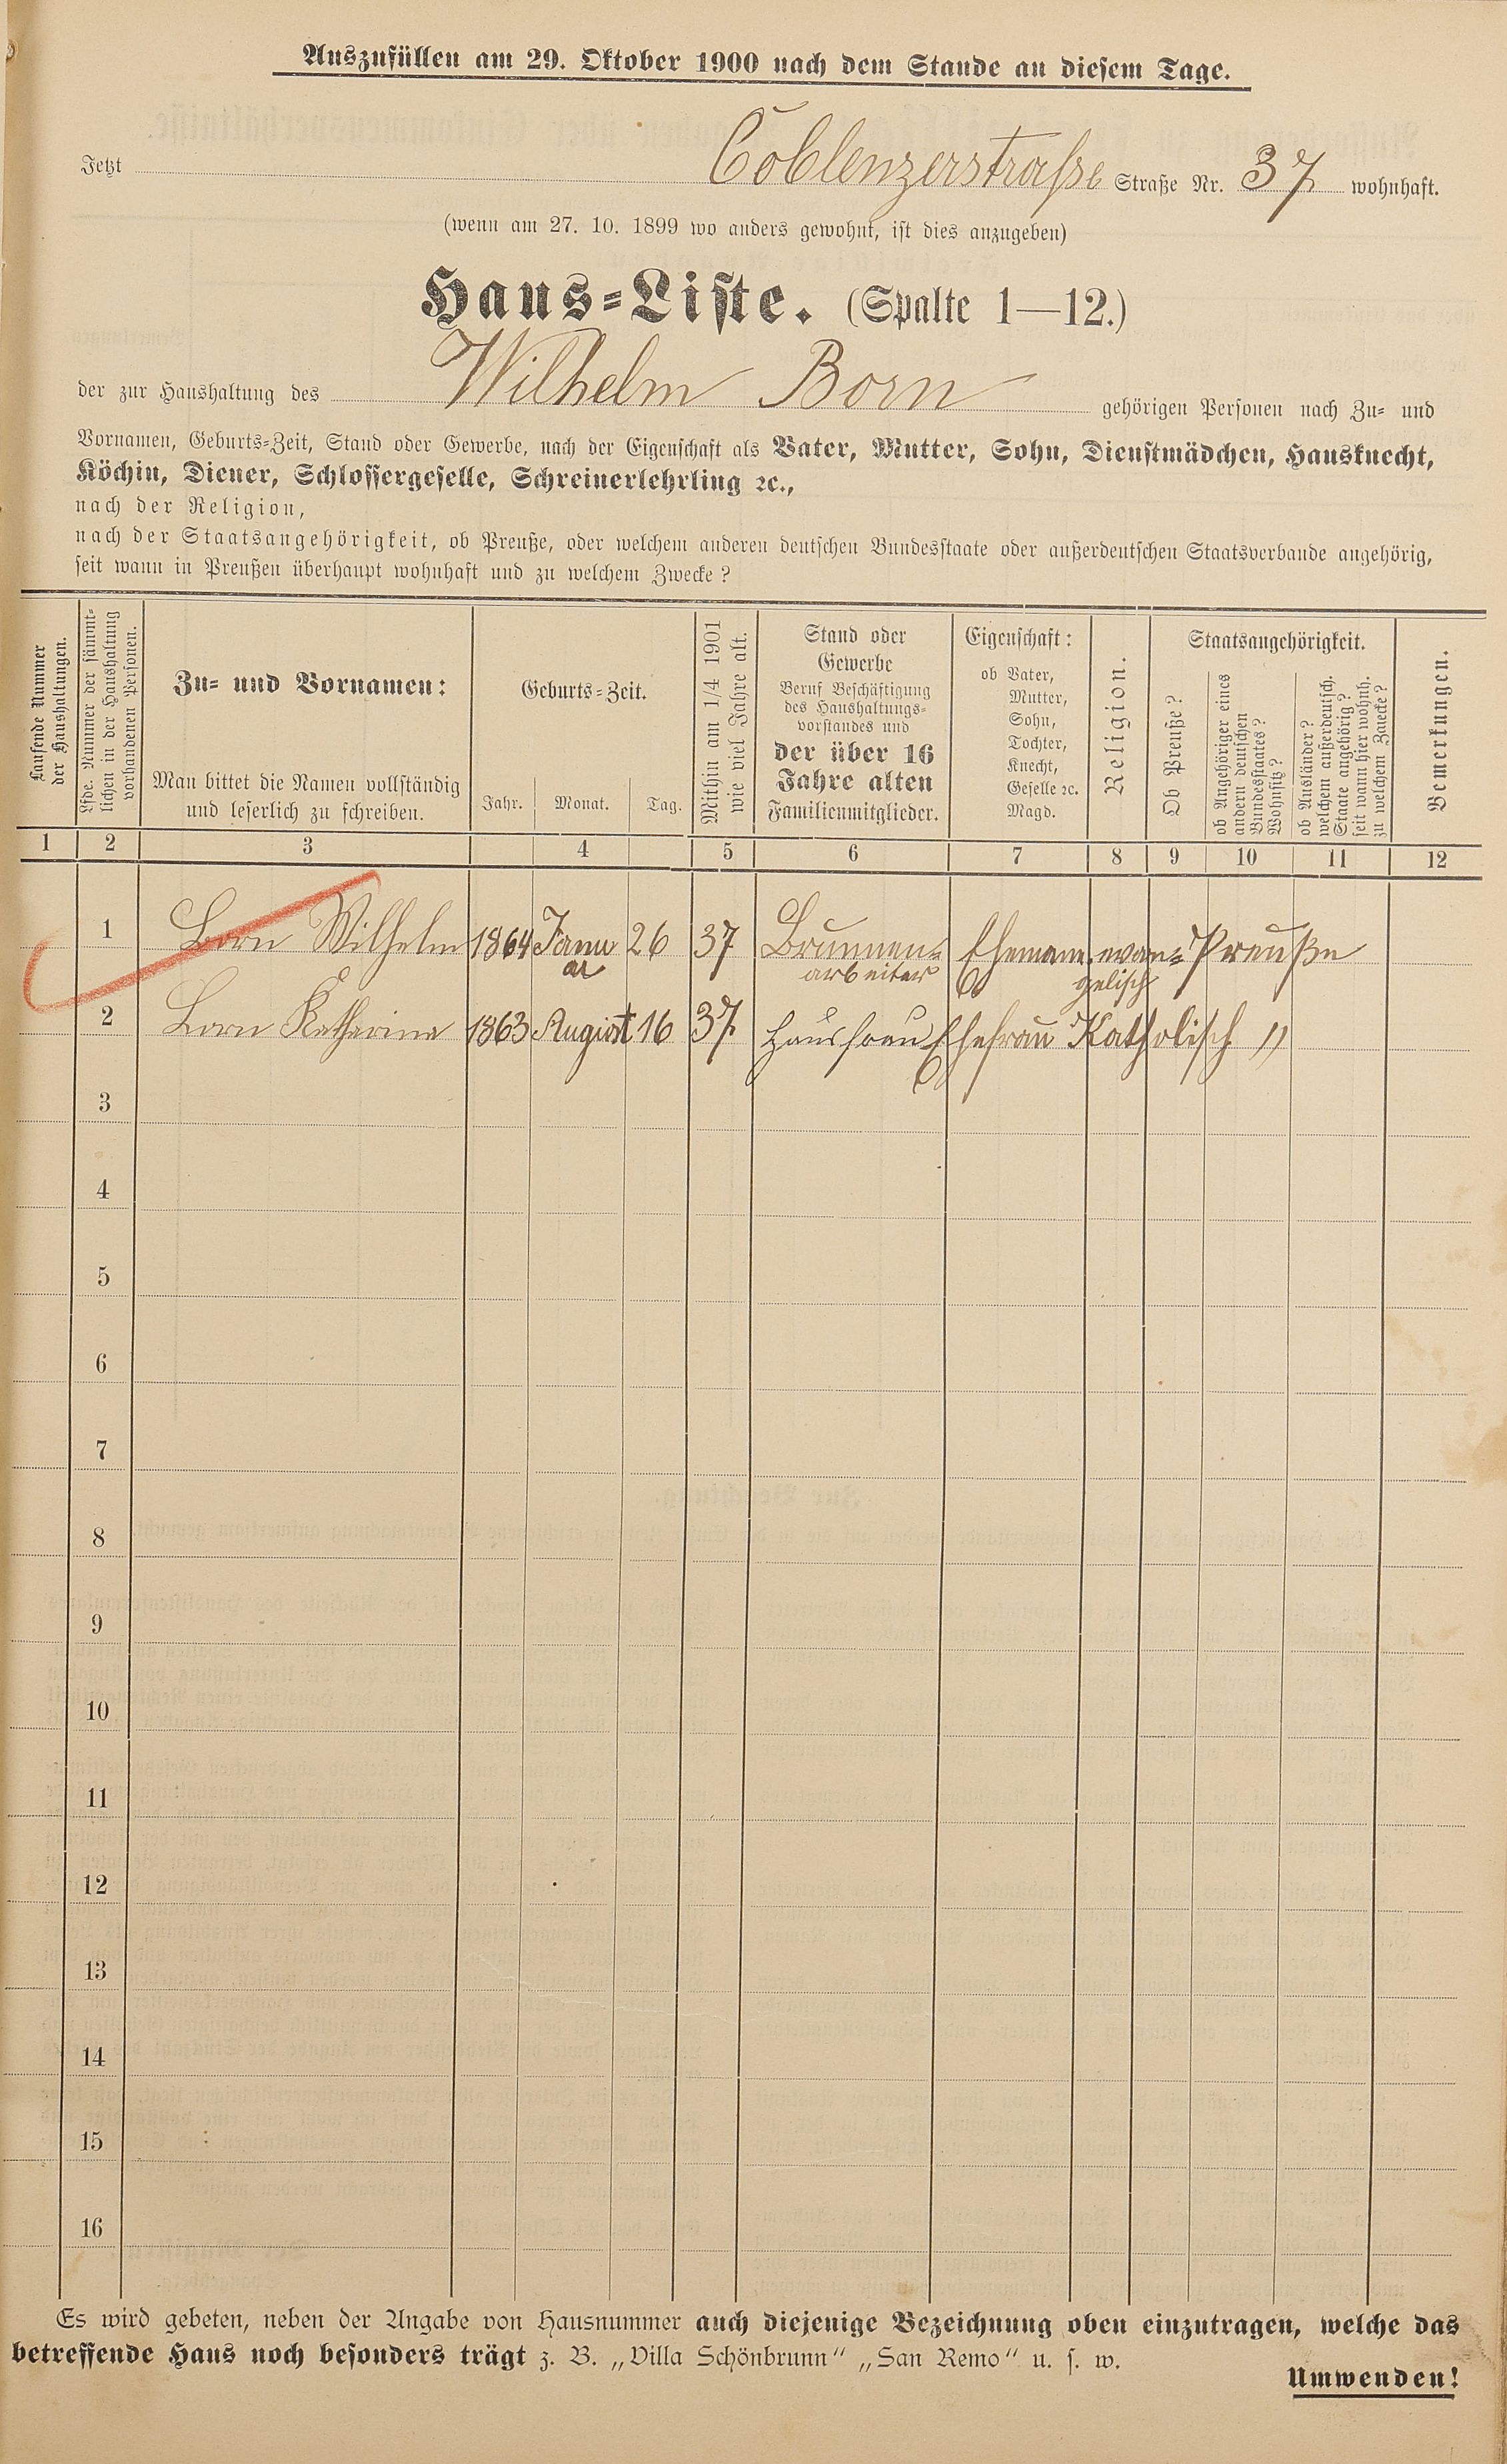 Auszufüllen am 29. Oktober 1900 nach dem Stande an diesem Tage.
Jetzt Coblenzerstraße Straße Nr. 37 wohnhaft.
(wenn am 27. 10. 1899 wo anders gewohnt, ist dies anzugeben)
Haus-Liste. (Spalte 1—12.)
der zur Haushaltung des Wilhelm Born gehörigen Personen nach Zu- und
Vornamen, Geburts-Zeit, Stand oder Gewerbe, nach der Eigenschaft als Vater, Mutter, Sohn, Dienstmädchen, Hausknecht,
Köchin, Diener, Schlossergeselle, Schreinerlehrling ꝛc.,
nach der Religion,
nach der Staatsangehörigkeit, ob Preuße, oder welchem anderen deutschen Bundesstaate oder außerdeutschen Staatsverbande angehörig,
seit wann in Preußen überhaupt wohnhaft und zu welchem Zwecke?
Laufende Nummer
der Haushaltungen.
Lfde. Nummer der sämmt-
lichen in der Haushaltung
vorhandenen Personen.
Zu- und Vornamen:
Man bittet die Namen vollständig
und leserlich zu schreiben.
Geburts-Zeit.
Jahr. Monat. Tag.
Mithin am 1/4 1901
wie viel Jahre alt.
Stand oder
Gewerbe
Beruf Beschäftigung
des Haushaltungs-
vorstandes und
der über 16
Jahre alten
Familienmitglieder.
Eigenschaft:
ob Vater,
Mutter,
Sohn,
Tochter,
Knecht,
Geselle ꝛc.
Magd.
Religion.
Staatsangehörigkeit.
Ob Preuße?
ob Angehöriger eines
andern deutschen
Bundesstaates?
Wohnsitz?
ob Ausländer?
welchem außerdeutsch.
Staate angehörig?
seit wann hier wohnh.
zu welchem Zwecke?
Bemerkungen.
1 2 3 4 5 6 7 8 9 10 11 12
1 Born Wilhelm 1864 Janu 26 37 Brunnen- Ehemann evan- Preuße
ar arbeiter gelisch
2 Born Katharina 1863 August 16 37 Hausfrau Ehefrau Katholisch "
3
4
5
6
7
8
9
10
11
12
13
14
15
16
Es wird gebeten, neben der Angabe von Hausnummer auch diejenige Bezeichnung oben einzutragen, welche das
betreffende Haus noch besonders trägt z. B. „Villa Schönbrunn“ „San Remo“ u. s. w.
Umwenden!